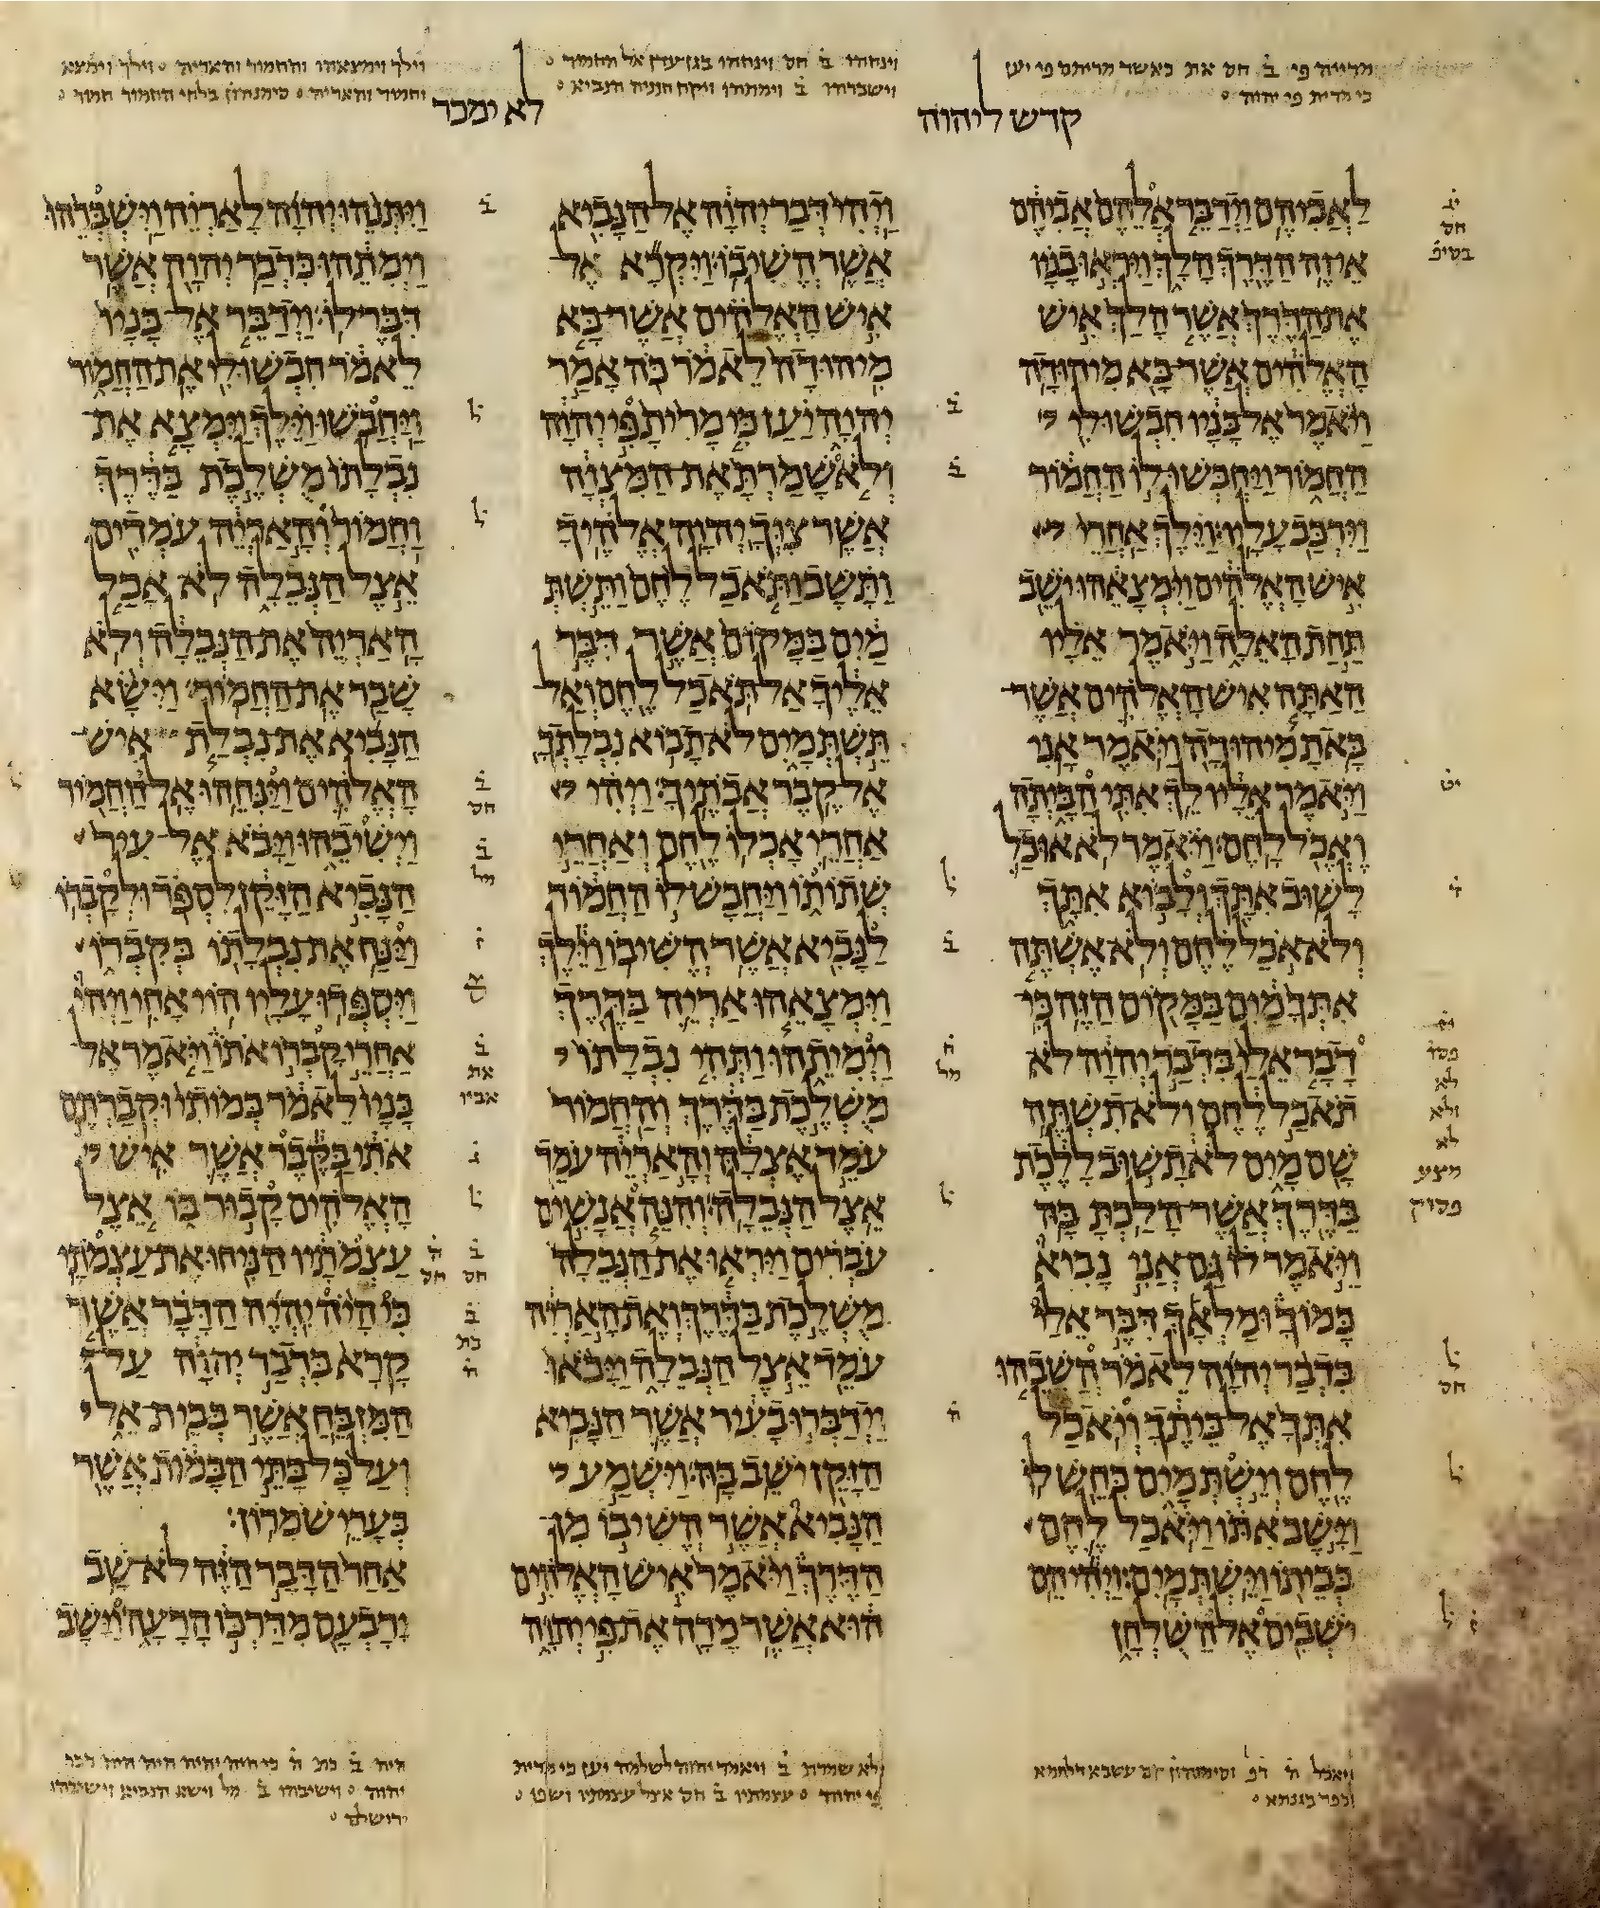 וינחהו ב חס וינחהו בגן עדן אל החמור
וישברהו ב וימתהו ויקח חנניה הנביא
וילך וימצאהו והחמור והאריה וילך וימצא
וחמור והאריה סימנהון בלחי החמור חמור
כי מרית פי יהוה
קדש ליהוה
לא ימכר
לאביהם וידבר אלהם אביהם
אי זה הדרך הלך ויראו בניו
את הדרך אשר הלך איש
האלהים אשר בא מיהודה
ויאמר אל בניו חבשו לי
החמור ויחבשו לו החמור
וירכב עליו׃ וילך אחרי
איש האלהים וימצאהו ישב
תחת האלה ויאמר אליו
האתה איש האלהים אשר־
באת מיהודה ויאמר אני
ויאמר אליו לך אתי הביתה
ואכל לחם׃ ויאמר לא אוכל
לשוב אתך ולבוא אתך
ולא אכל לחם ולא אשתה
אתך מים במקום הזה׃ כי
דבר אלי בדבר יהוה לא
תאכל לחם ולא תשתה
שם מים לא תשוב ללכת
בדרך אשר הלכת בה׃
ויאמר לו גם אני נביא
כמוך ומלאך דבר אלי
בדבר יהוה לאמר השבהו
אתך אל ביתך ויאכל
לחם וישת מים כחש לו׃
וישב אתו ויאכל לחם
בביתו וישת מים׃ ויהי הם
ישבים אל השלחן
ויהי דבר יהוה אל הנביא
אשר השיבו׃ ויקרא אל
איש האלהים אשר בא
מיהודה לאמר כה אמר
יהוה יען כי מרית פי יהוה
ולא שמרת את המצוה
אשר צוך יהוה אלהיך׃
ותשב ותאכל לחם ותשת
מים במקום אשר דבר
אליך אל תאכל לחם ואל
תשת מים לא תבוא נבלתך
אל קבר אבתיך׃ ויהי
אחרי אכלו לחם ואחרי
שתותו ויחבש לו החמור
לנביא אשר השיבו׃ וילך
וימצאהו אריה בדרך
וימיתהו ותהי נבלתו
משלכת בדרך והחמור
עמד אצלה והאריה עמד
אצל הנבלה׃ והנה אנשים
עברים ויראו את הנבלה
משלכת בדרך ואת האריה
עמד אצל הנבלה ויבאו
וידברו בעיר אשר הנביא
הזקן ישב בה׃ וישמע
הנביא אשר השיבו מן־
הדרך ויאמר איש האלהים
הוא אשר מרה את פי יהוה
ויתנהו יהוה לאריה וישברהו
וימתהו כדבר יהוה אשר
דבר לו׃ וידבר אל בניו
לאמר חבשו לי את החמור
ויחבשו׃ וילך וימצא את
נבלתו משלכת בדרך
וחמור והאריה עמדים
אצל הנבלה לא אכל
האריה את הנבלה ולא
שבר את החמור׃ וישא
הנביא את נבלת איש־
האלהים וינחהו אל החמור
וישיבהו ויבא אל עיר
הנביא הזקן לספד ולקברו׃
וינח את נבלתו בקברו
ויספדו עליו הוי אחי׃ ויהי
אחרי קברו אתו ויאמר אל
בניו לאמר במותי וקברתם
אתי בקבר אשר איש
האלהים קבור בו אצל
עצמתיו הניחו את עצמתי׃
כי היה יהיה הדבר אשר
קרא בדבר יהוה על
המזבח אשר בבית אל
ועל כל בתי הבמות אשר
בערי שמרון׃
אחר הדבר הזה לא שב
ירבעם מדרכו הרעה וישב
לא שמרת ב ויאמר יהוה לשלמה יען כי מרית
פי יהוה עצמתיו ב חס אצל עצמתיו ושפו
היה ב כת ה כי היה יהיה היה היה דבר
יהוה וישיבהו ב מל וישא הנביא וישיבהו
ירושלם